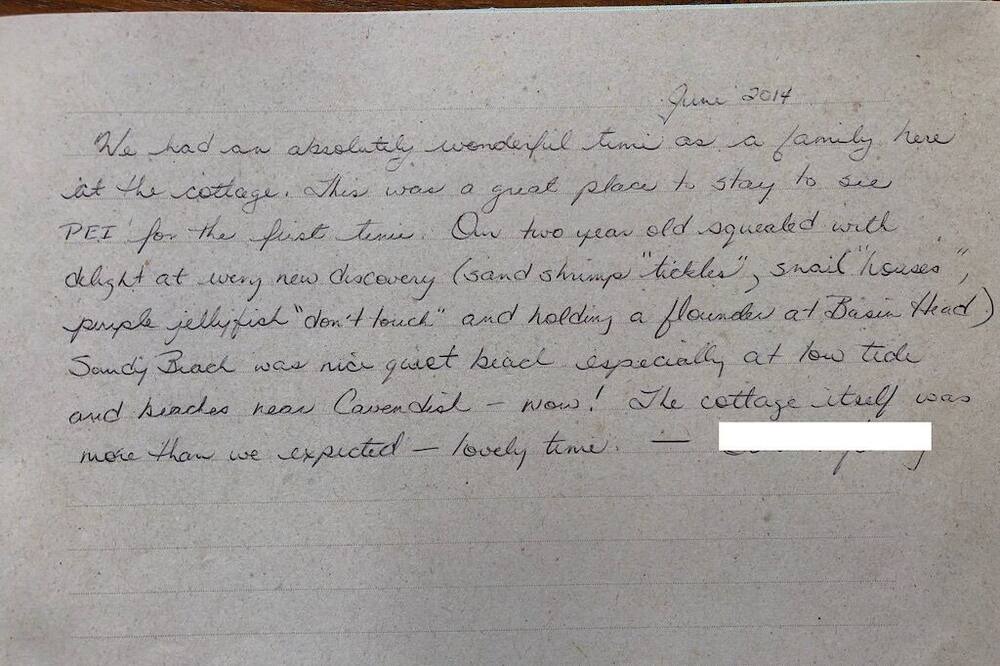 June 2014
We had an absolutely wonderful time as a family here
at the cottage. This was a great place to stay to see
PEI for the first time. Our two year old squealed with
delight at every new discovery (sand shrimp "tickles", snail "houses",
purple jellyfish "don't touch" and holding a flounder at Basin Head)
Sandy Beach was nice quiet beach especially at low tide
and beaches near Cavendish - wow! The cottage itself was
more than we expected - lovely time. —